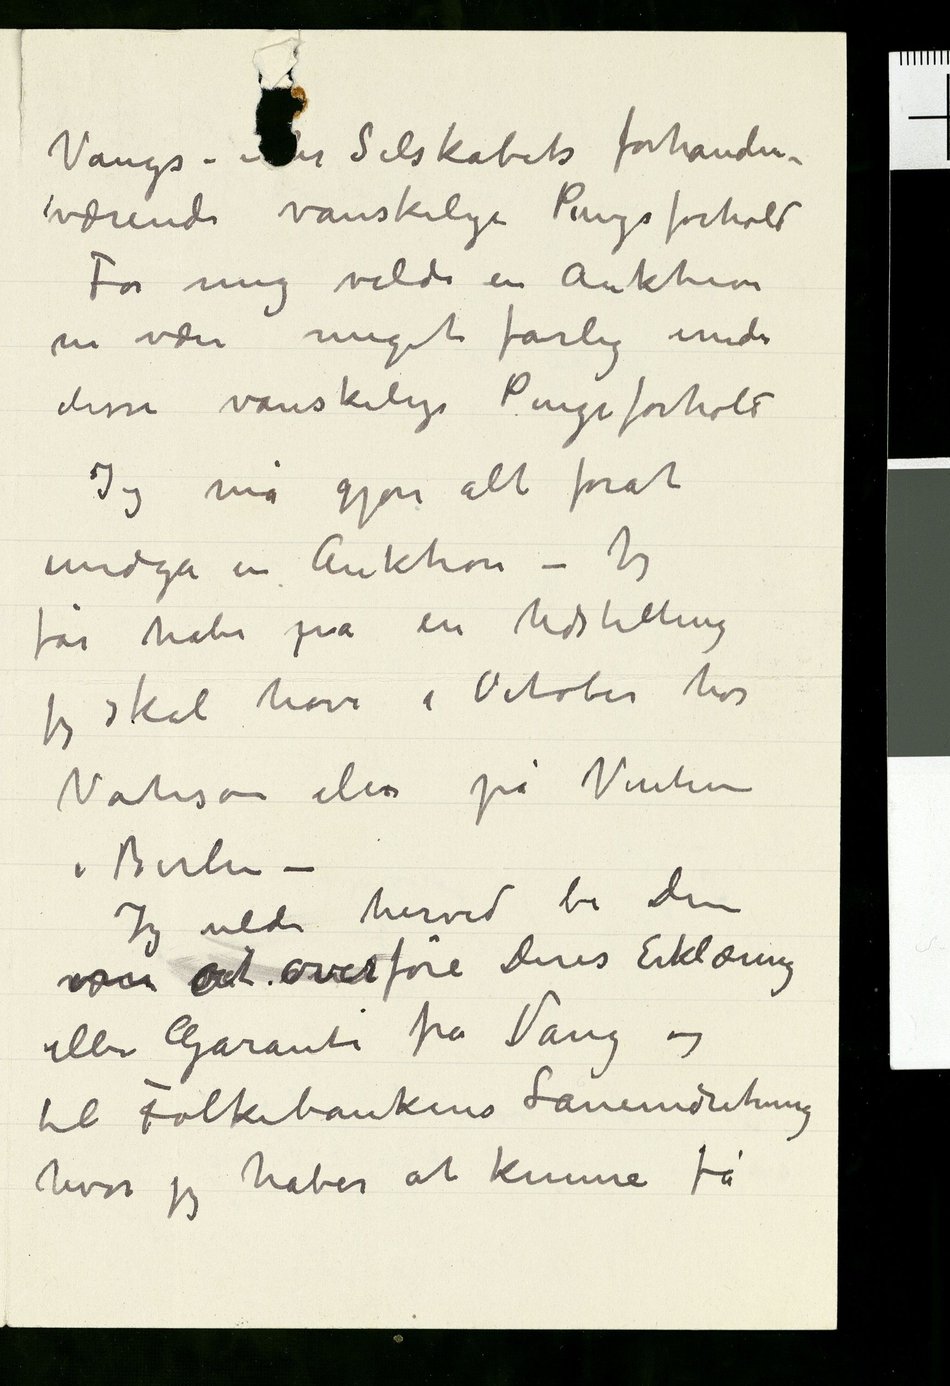 Vangs – eller Selskabets forhanden-
værende vanskelige Pengeforhold
For mig vilde en Auktion
nu være meget farlig under
disse vanskelige Pengeforhold
Jeg må gjøre alt forat
undgå en Auktion – Jeg
får håbe på en Udstilling
jeg skal have i October hos
eller på
i Berlin –
Jeg vilde herved be Dem
at overføre Deres Erklæring
eller Garanti fra Vang og
til Folkebankens Låneindretning
hvor jeg håber at kunne få